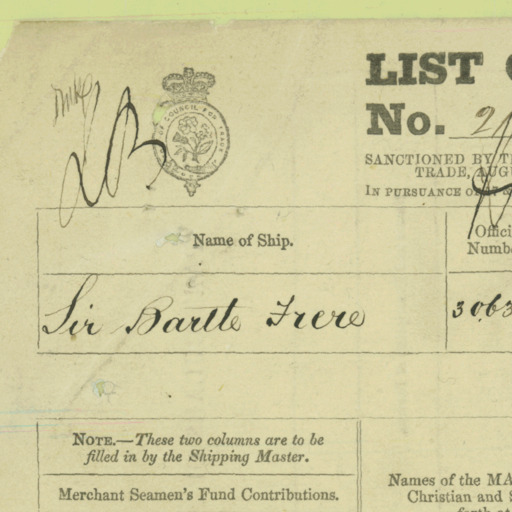 LIST
No. 2
OF COUNCIL FOR TRADE
SANCTIONED BY
TRADE, AUGU
IN PURSUANCE
Name of Ship.
Offici
Numb
Sir Bartle Frere
3063
NOTE.—These two columns are to be
filled in by the Shipping Master.
Merchant Seamen's Fund Contributions.
Names of the MA
Christian and
forth at